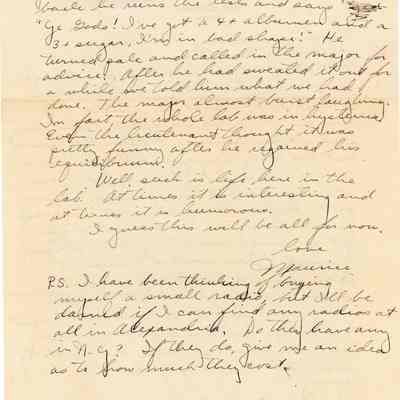 back he runs the tests and says
"Ye Gods! I've got a 4+ albumen and a
3+ sugar, I'm in bad shape!" He
turned pale and called in the major for
advice. After he had sweated it out for
a while we told him what we had
done. The major almost burst laughing.
In fact, the whole lab was in hysterics.
Even the lieutenant thought it was
pretty funny after he regained his
equilibrium.
Well such is life here in the
lab. At times it is interesting and
at times it is humorous.
I guess this will be all for now.
Love
Maurice
P.S. I have been thinking of buying
myself a small radio, but I'll be
darned if I can find any radios at
all in Alexandria. Do they have any
in N.Y.? If they do, give me an idea
as to how much they cost.